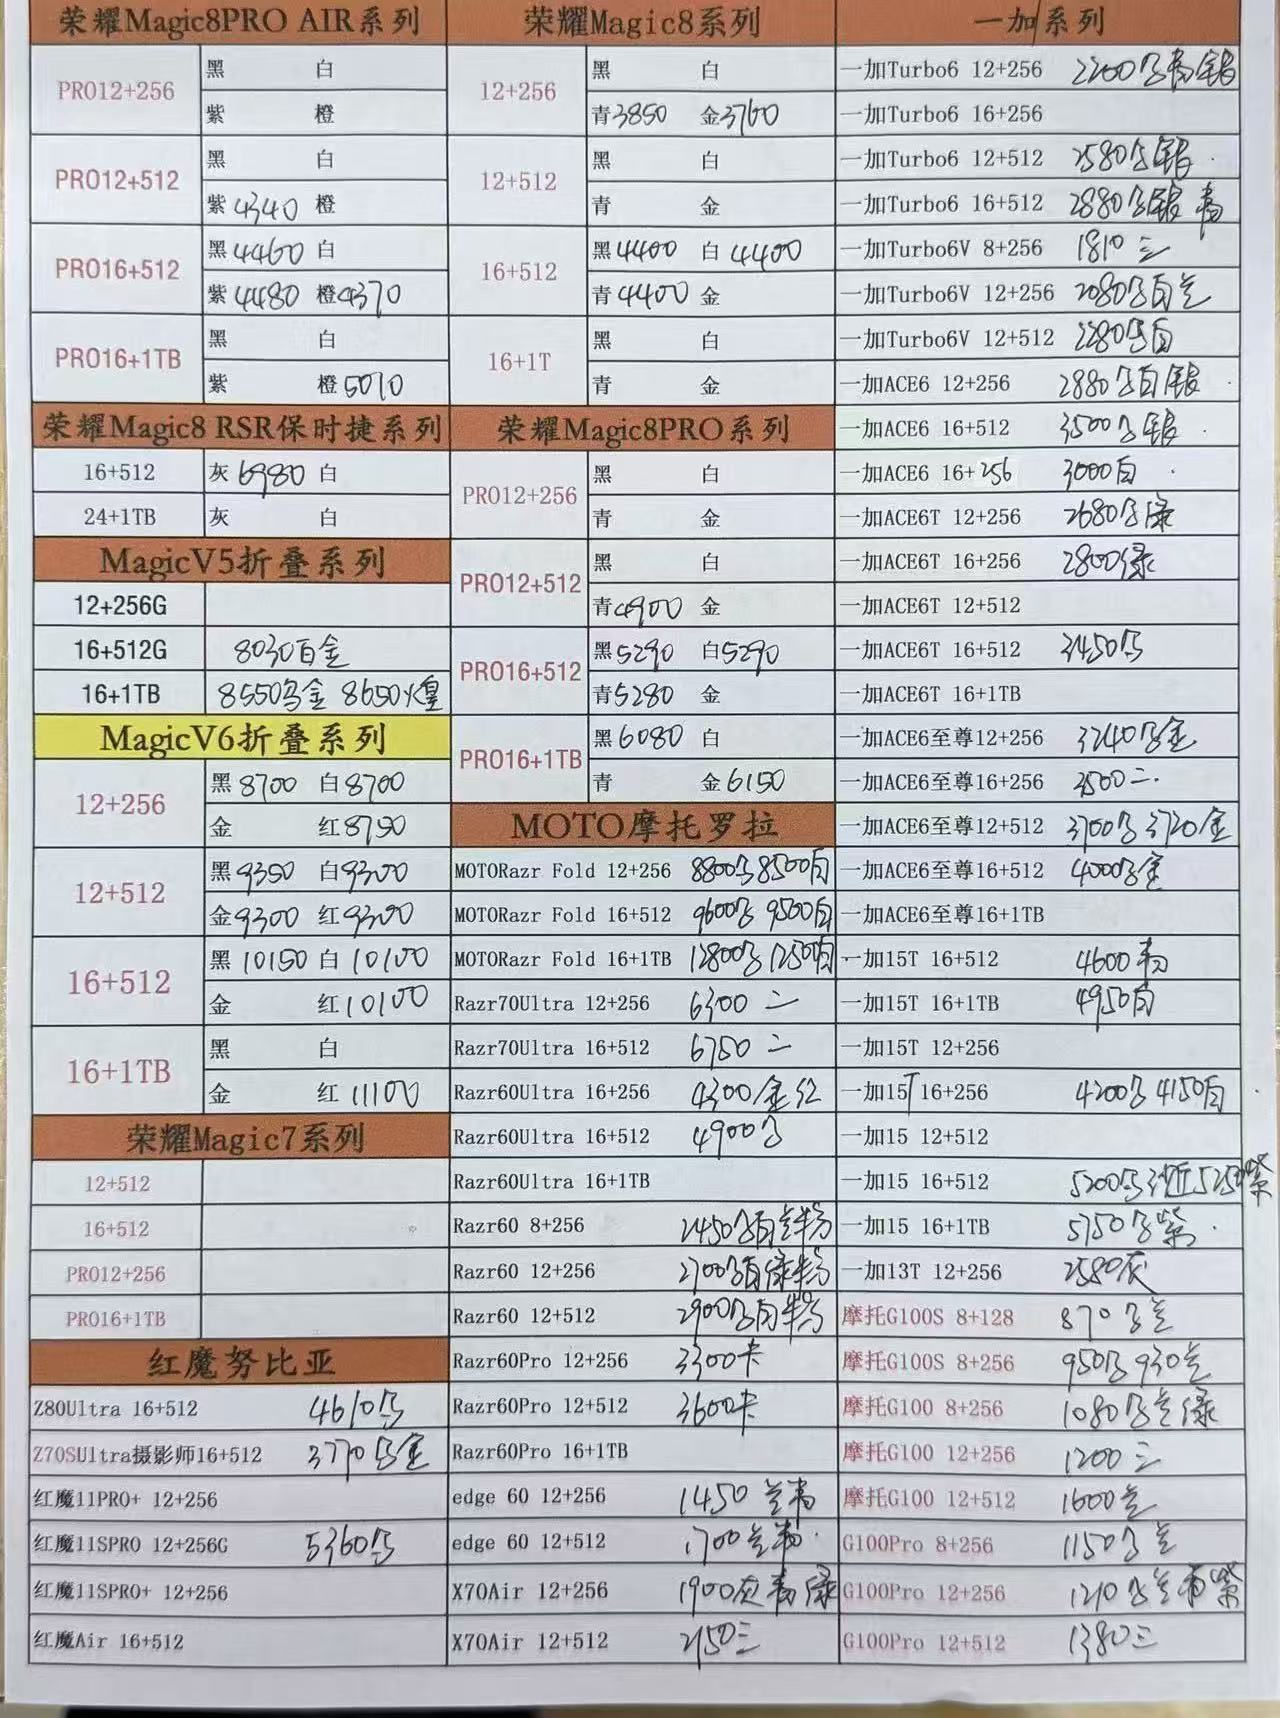 荣耀Magic8PRO AIR系列
PRO12+256 黑 白
紫 橙
PRO12+512 黑 白
紫4340 橙
PRO16+512 黑4460 白
紫4480 橙4370
PRO16+1TB 黑 白
紫 橙5070
荣耀Magic8 RSR保时捷系列
16+512 灰6980 白
24+1TB 灰 白
MagicV5折叠系列
12+256G
16+512G 8030白金
16+1TB 8550乌金 8650火皇
MagicV6折叠系列
12+256 黑8700 白8700
金 红8750
12+512 黑9350 白9300
金9300 红9300
16+512 黑10150 白10100
金 红10100
16+1TB 黑 白
金 红11100
荣耀Magic7系列
12+512
16+512
PRO12+256
PRO16+1TB
红魔努比亚
Z80Ultra 16+512 4610
Z70SUltra摄影师16+512 3770 金
红魔11PRO+ 12+256
红魔11SPRO 12+256G 5360
红魔11SPRO+ 12+256
红魔Air 16+512
荣耀Magic8系列
12+256 黑 白
青3850 金3760
12+512 黑 白
青 金
16+512 黑4400 白4400
青4400 金
16+1T 黑 白
青 金
荣耀Magic8PRO系列
PRO12+256 黑 白
青 金
PRO12+512 黑 白
青4900 金
PRO16+512 黑5290 白5290
青5280 金
PRO16+1TB 黑6080 白
青 金6150
MOTO摩托罗拉
MOTORazr Fold 12+256 8800 8500白
MOTORazr Fold 16+512 9600 9500白
MOTORazr Fold 16+1TB 12800 白
Razr70Ultra 12+256 6300 二
Razr70Ultra 16+512 6750 二
Razr60Ultra 16+256 4300金红
Razr60Ultra 16+512 4900
Razr60Ultra 16+1TB
Razr60 8+256 2450 白兰粉
Razr60 12+256 2700 白绿粉
Razr60 12+512 2900 白粉
Razr60Pro 12+256 3300卡
Razr60Pro 12+512 3600卡
Razr60Pro 16+1TB
edge 60 12+256 1450 兰青
edge 60 12+512 1700兰
X70Air 12+256 1900灰青绿
X70Air 12+512 2150三
一加系列
一加Turbo6 12+256 2200 青银
一加Turbo6 16+256
一加Turbo6 12+512 2580 银
一加Turbo6 16+512 2880 银 青
一加Turbo6V 8+256 1810 三
一加Turbo6V 12+256 2080 白兰
一加Turbo6V 12+512 2280 白
一加ACE6 12+256 2880 白银
一加ACE6 16+512 3500 银
一加ACE6 16+256 3000白
一加ACE6T 12+256 2680 绿
一加ACE6T 16+256 2800绿
一加ACE6T 12+512
一加ACE6T 16+512 3450
一加ACE6T 16+1TB
一加ACE6至尊12+256 3240 金
一加ACE6至尊16+256 3500二
一加ACE6至尊12+512 3700 3720金
一加ACE6至尊16+512 4000 金
一加ACE6至尊16+1TB
一加15T 16+512 4600青
一加15T 16+1TB 4950白
一加15T 12+256
一加15T 16+256 4200 4150白
一加15 12+512
一加15 16+512 5200 紫
一加15 16+1TB 5750 紫
一加13T 12+256 2580灰
摩托G100S 8+128 870 兰
摩托G100S 8+256 950 930兰
摩托G100 8+256 1080 兰绿
摩托G100 12+256 1200三
摩托G100 12+512 1600兰
G100Pro 8+256 1150 兰
G100Pro 12+256 1210 兰青紫
G100Pro 12+512 1380三